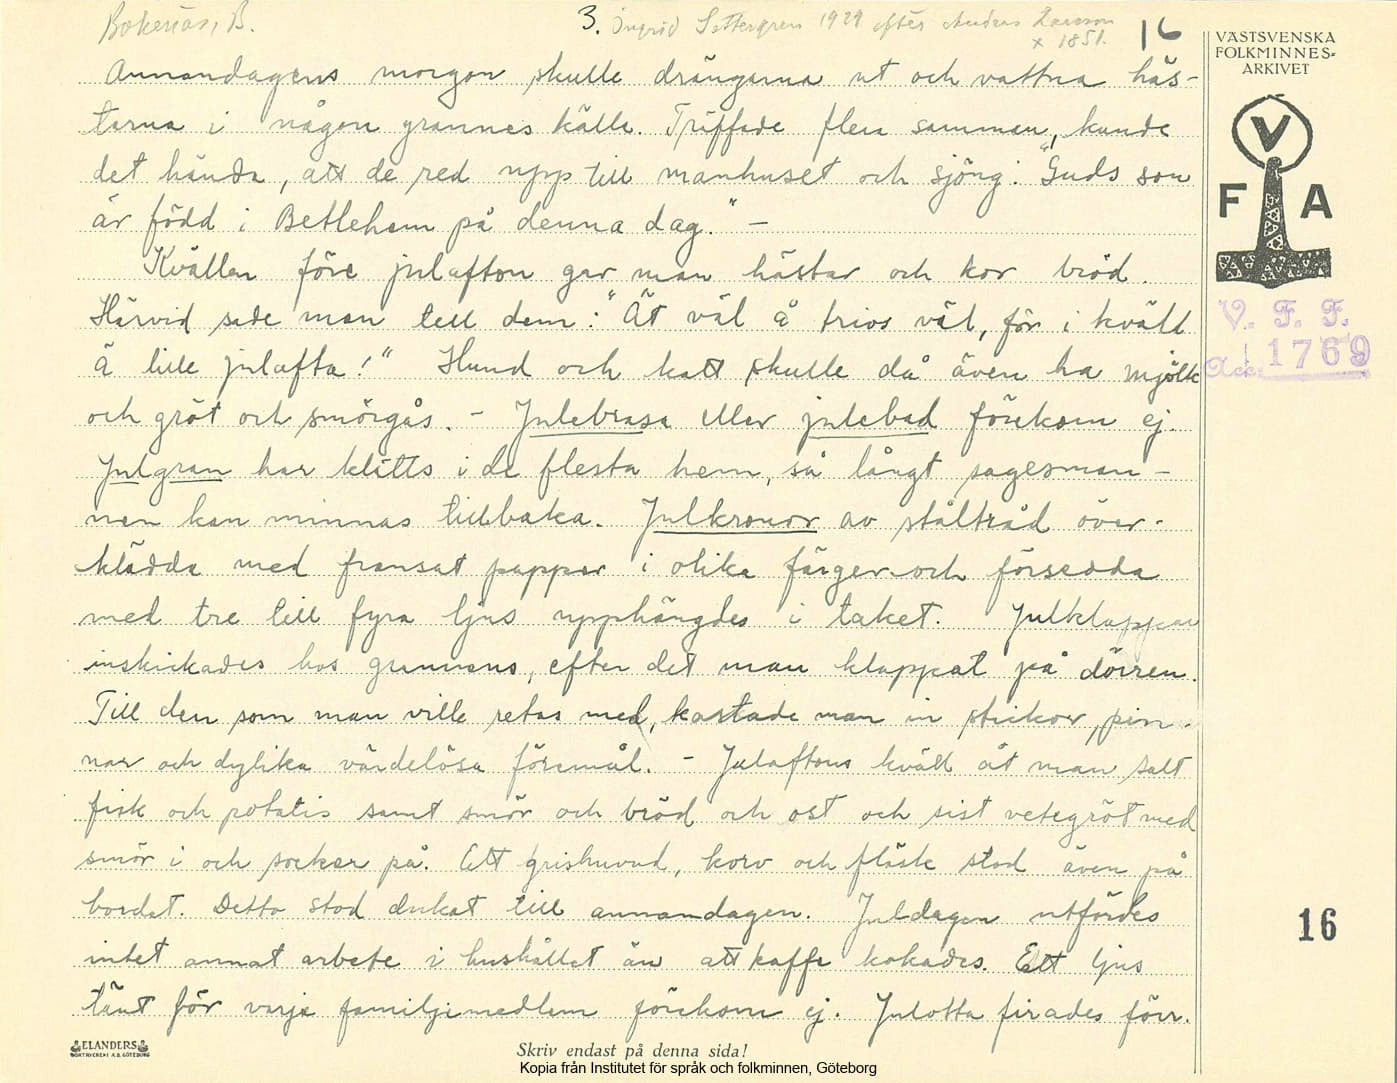 Bokenäs, B.
3. Ingrid Settergren 1929 efter Anders Larsson
x 1851.
16
VÄSTSVENSKA
FOLKMINNES=
ARKIVET
V
F A
V. F. F.
Acc. 1769
Annandagens morgon skulle drängarna ut och vattna häs-
tarna i någon grannes källa. Träffade flera samman, kunde
det hända, att de red upp till manhuset och sjöng: "Guds son
är född i Betlehem på denna dag." -
Kvällen före julafton gav man hästar och kor bröd.
Härvid sade man till dem: "Ät väl å trivs väl, för i kväll
ä lille julafta!" Hund och katt skulle då även ha mjölk
och gröt och smörgås. - Julebrasa eller julebad förekom ej.
Julgran har klätts i de flesta hem, så långt sagesman-
nen kan minnas tillbaka. Julkronor av ståltråd över-
klädda med fransat papper i olika färger och försedda
med tre till fyra ljus upphängdes i taket. Julklappar
inskickades hos grannens, efter det man klappat på dörren.
Till den som man ville retas med, kastade man in stickor, pin-
nar och dylika värdelösa föremål. - Julaftons kväll åt man salt
fisk och potatis samt smör och bröd och ost och sist vetegröt med
smör i och socker på. Ett grishuvud, korv och fläsk stod även på
bordet. Detta stod dukat till annandagen. Juldagen utfördes
intet annat arbete i hushållet än att kaffe kokades. Ett ljus
tänt för varje familjemedlem förekom ej. Julotta firades förr.
16
ELANDERS
BOKTRYCKERI A.B. GÖTEBORG
Skriv endast på denna sida!
Kopia från Institutet för språk och folkminnen, Göteborg